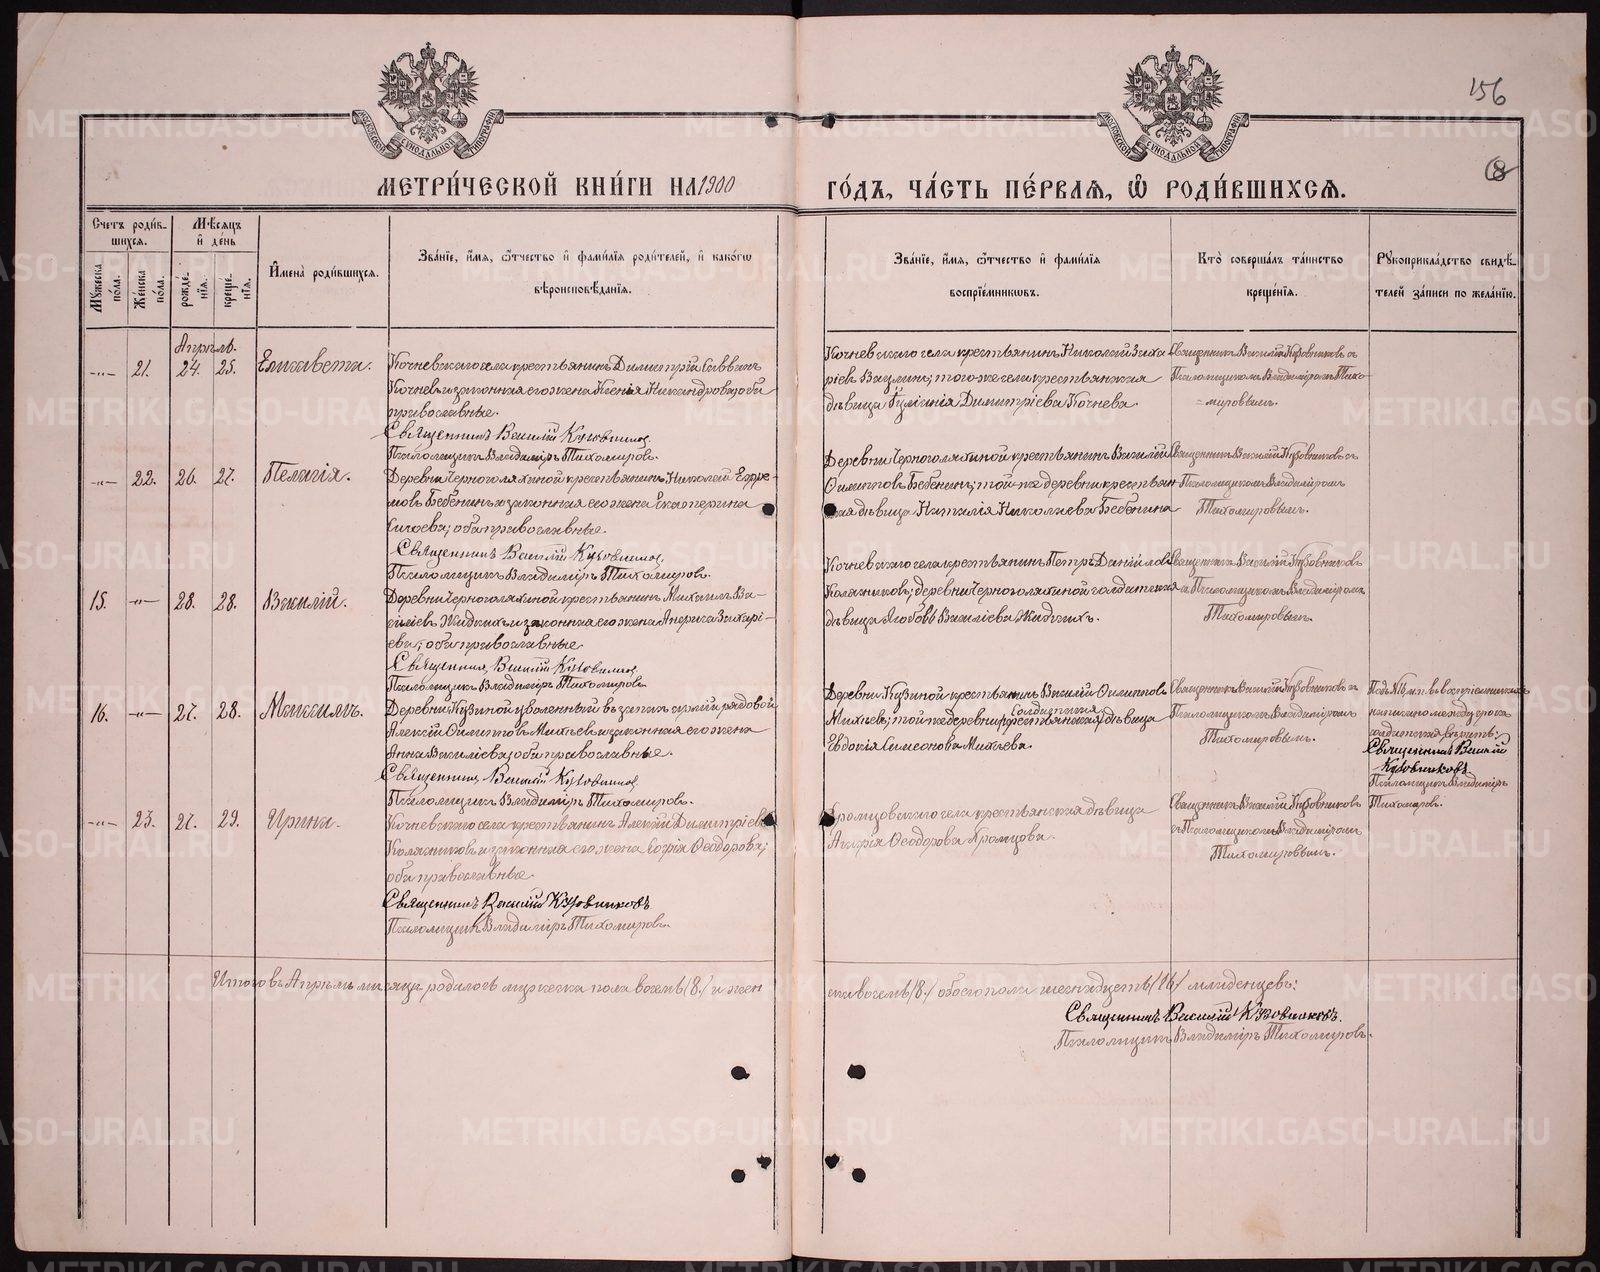 156
8
МЕТРИ́ЧЕСКОЙ КНИ́ГИ НА 1900 ГО́ДЪ, ЧА́СТЬ ПЕ́РВАЯ, Ѡ҆ РОДИ́ВШИХСЯ.
Счетъ роди́в-
шихся.
Мужеска по́ла.
Же́нска по́ла.
Мѣ́сяцъ и҆ де́нь
рожде́нїя.
креще́нїя.
И҆мена̀ роди́вшихся.
Зва́нїе, и҆́мя, ѻ҆́тчество и҆ фами́лїя роди́телей, и҆ како́гѡ
вѣроисповѣ́данїя.
Зва́нїе, и҆́мя, ѻ҆́тчество и҆ фами́лїя
воспрїе́мникѡвъ.
Кто̀ соверша́лъ та́инство
креще́нїя.
Рꙋкоприкла́дство свидѣ́-
телей за́писи по жела́нїю.
Апрѣль.
-"- 21. 24. 25. Елисавета.
Кочневскаго села крестьянинъ Димитрій Саввинъ
Кочневъ и законная его жена Ксенія Никандрова; оба
православные.
Священникъ Василій Кузовниковъ
Псаломщикъ Владиміръ Тихомировъ.
Кочневскаго села крестьянинъ Николай Заха-
ріевъ ; того же села крестьянская
дѣвица Іуліанія Димитріева Кочнева.
Священникъ Василій Кузовниковъ съ
Псаломщикомъ Владиміромъ Тихо-
мировымъ.
-"- 22. 26. 27. Пелагія.
Деревни Черноголяхиной крестьянинъ Николай Ефре-
мовъ Бебенинъ и законная его жена Екатерина
Сисоева; оба православные.
Священникъ Василій Кузовниковъ
Псаломщикъ Владиміръ Тихомировъ.
Деревни Черноголяхиной крестьянинъ Василій
Филипповъ Бебенинъ; той-же деревни крестьян-
ская дѣвица Наталія Николаева Бебенина
Священникъ Василій Кузовниковъ съ
Псаломщикомъ Владиміромъ
Тихомировымъ.
15. -"- 28. 28. Василій.
Деревни Черноголяхиной крестьянинъ Михаилъ Ва-
силіевъ Жидкихъ и законная его жена Захарі-
ева; оба православные.
Священникъ Василій Кузовниковъ
Псаломщикъ Владиміръ Тихомировъ.
Кочневскаго села крестьянинъ Петръ Даніиловъ
Колясниковъ; деревни Черноголяхиной солдатская
дѣвица Любовь Василіева Жидкихъ.
Священникъ Василій Кузовниковъ
съ Псаломщикомъ Владиміромъ
Тихомировымъ.
16. -"- 27. 28. Максимъ.
Деревни Кузиной уволенный въ запасъ арміи рядовой
Алексій Филипповъ Михѣевъ и законная его жена
Анна Василіева; оба православные.
Священникъ Василій Кузовниковъ
Псаломщикъ Владиміръ Тихомировъ.
Деревни Кузиной крестьянинъ Василій Филипповъ
солдатская
Михѣевъ; той же деревни (крестьянская) дѣвица
Евдокія Симеонова Михѣева.
Священникъ Василій Кузовниковъ съ
Псаломщикомъ Владиміромъ
Тихомировымъ.
Подъ №16 м.п. въ воспріемникахъ
написано между строкъ
солдатская вѣрить:
Священникъ Василій
Кузовниковъ
Псаломщикъ Владиміръ
Тихомировъ.
-"- 23. 27. 29. Ирина.
Кочневскаго села крестьянинъ Алексій Димитріевъ
Колясниковъ и законная его жена Софія Феодорова;
оба православные.
Священникъ Василій Кузовниковъ
Псаломщикъ Владиміръ Тихомировъ.
Храмцовскаго села крестьянская дѣвица
Феодорова Храмцова.
Священникъ Василій Кузовниковъ
съ Псаломщикомъ Владиміромъ
Тихомировымъ.
Итого въ Апрѣлѣ мѣсяцѣ родилось мужеска пола восемь /8./ и жен
ска восемь /8./ обоего пола шестнадцать /16./ младенцевъ:
Священникъ Василій Кузовниковъ.
Псаломщикъ Владиміръ Тихомировъ.
METRIKI.GASO-URAL.RU